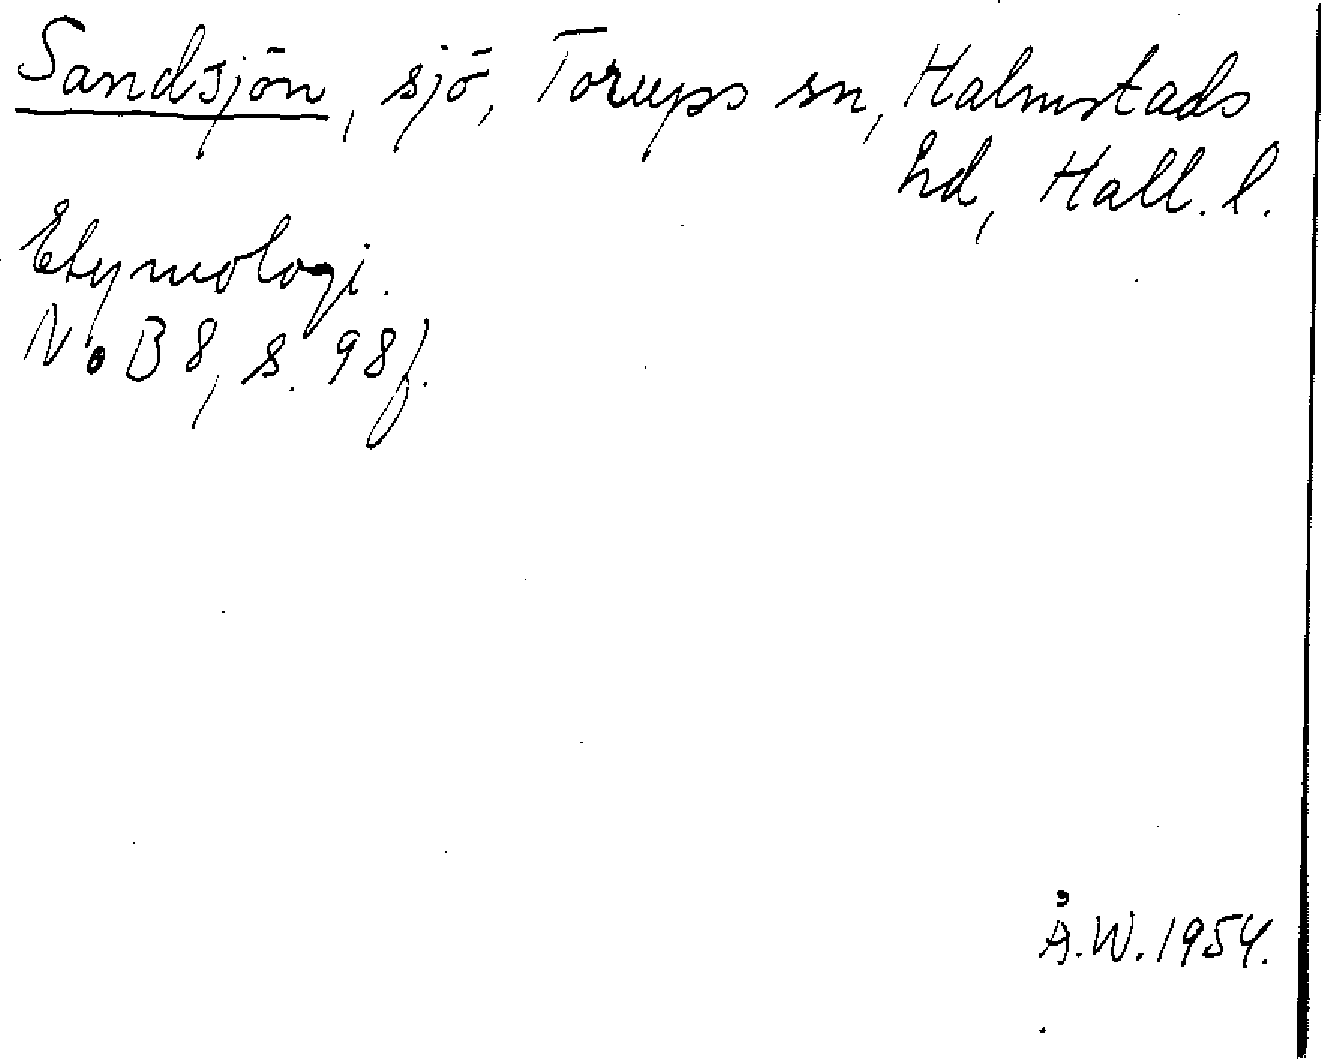 Sandsjön, sjö, Torups sn, Halmstads
hd, Hall. l.
Etymologi.
NoB 8, s. 98f.
Å.W. 1954.